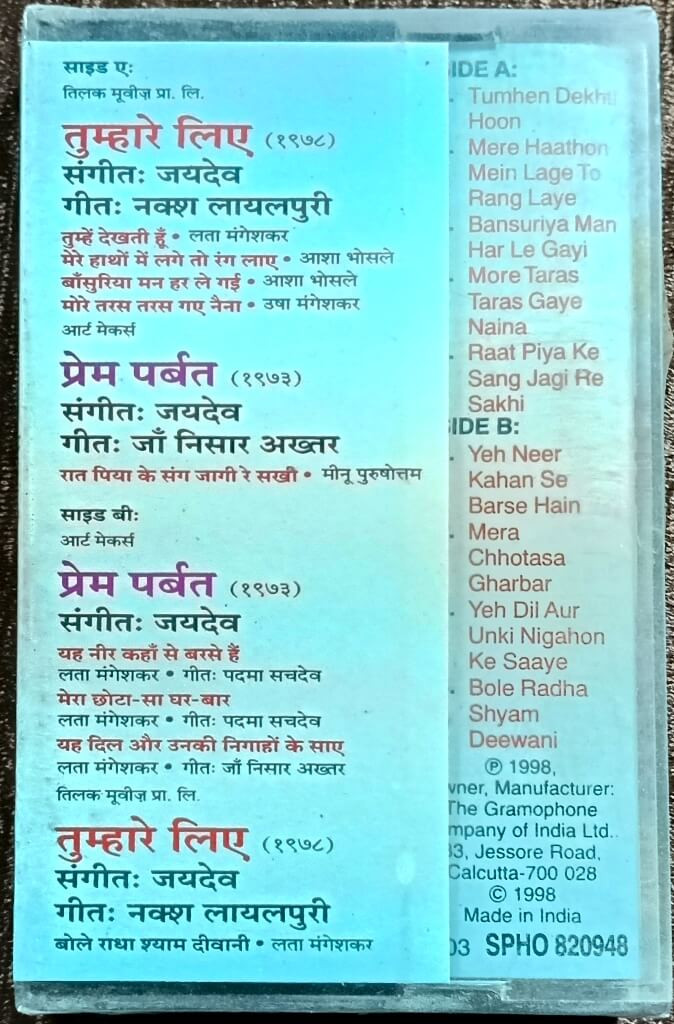 साइड ए:
तिलक मूवीज़ प्रा. लि.
तुम्हारे लिए (१९७८)
संगीत: जयदेव
गीत: नक्श लायलपुरी
तुम्हें देखती हूँ • लता मंगेशकर
मेरे हाथों में लगे तो रंग लाए • आशा भोसले
बाँसुरिया मन हर ले गई • आशा भोसले
मोरे तरस तरस गए नैना • उषा मंगेशकर
आर्ट मेकर्स
प्रेम पर्बत (१९७३)
संगीत: जयदेव
गीत: जाँ निसार अख्तर
रात पिया के संग जागी रे सखी • मीनू पुरुषोत्तम
साइड बी:
आर्ट मेकर्स
प्रेम पर्बत (१९७३)
संगीत: जयदेव
यह नीर कहाँ से बरसे हैं
लता मंगेशकर • गीत: पदमा सचदेव
मेरा छोटा-सा घर-बार
लता मंगेशकर • गीत: पदमा सचदेव
यह दिल और उनकी निगाहों के साए
लता मंगेशकर • गीत: जाँ निसार अख्तर
तिलक मूवीज़ प्रा. लि.
तुम्हारे लिए (१९७८)
संगीत: जयदेव
गीत: नक्श लायलपुरी
बोले राधा श्याम दीवानी • लता मंगेशकर
IDE A:
Tumhen Dekhti
Hoon
Mere Haathon
Mein Lage To
Rang Laye
Bansuriya Man
Har Le Gayi
More Taras
Taras Gaye
Naina
Raat Piya Ke
Sang Jagi Re
Sakhi
IDE B:
Yeh Neer
Kahan Se
Barse Hain
Mera
Chhotasa
Gharbar
Yeh Dil Aur
Unki Nigahon
Ke Saaye
Bole Radha
Shyam
Deewani
℗ 1998,
wner, Manufacturer:
The Gramophone
mpany of India Ltd.
33, Jessore Road,
Calcutta-700 028
© 1998
Made in India
03 SPHO 820948